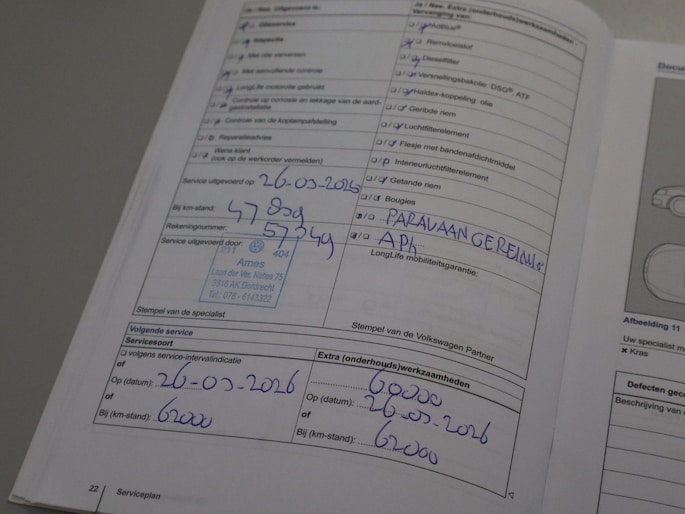 Ja / Nee, Uitgevoerd is:
Olieservice
Inspectie
Met olie verversen
Met aanvullende controle
LongLife motorolie gebruikt
Controle op corrosie en lekkage van de aard-
gasinstallatie
Controle van de koplampafstelling
Reparatieadvies
Wens klant
(ook op de werkorder vermelden)
Service uitgevoerd op: 26-03-2025
Bij km-stand:
Rekeningnummer: 57349
Service uitgevoerd door:
211 404
Ames
Laan der Ver. Naties 75
3316 AK Dordrecht
Tel.: 078 - 6143322
Stempel van de specialist
Ja / Nee, Extra (onderhouds)werkzaamheden -
Vervanging van:
Remvloeistof
Dieselfilter
Versnellingsbakolie: DSG®: ATF
Haldex-koppeling: olie
Geribde riem
Luchtfilterelement
Flesje met bandenafdichtmiddel
Interieurluchtfilterelement
Getande riem
Bougies
LongLife mobiliteitsgarantie:
Stempel van de Volkswagen Partner
Volgende service
Servicesoort
volgens service-intervalindicatie
of
Op (datum): 26-03-2026
of
Bij (km-stand): 62000
Extra (onderhouds)werkzaamheden
60000
Op (datum): 26-03-2026
of
Bij (km-stand): 62000
22 Serviceplan
Docu
Afbeelding 11
Uw specialist m
Kras
Defecten gec
Beschrijving van